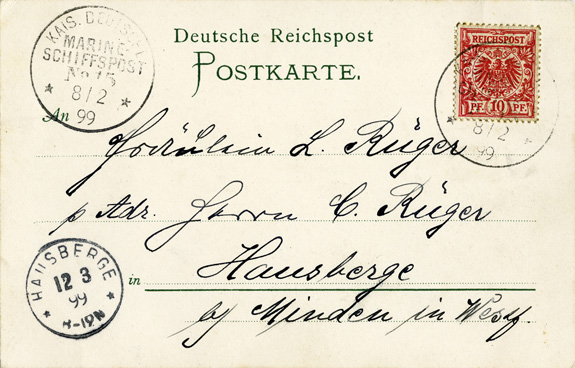 KAIS. DEUTSCHE
MARINE-
SCHIFFSPOST
No 15
8/2
99
Deutsche Reichspost
POSTKARTE.
REICHSPOST
PF. 10 PF.
8/2
99
An
Fräulein L. Rüger
p Adr. Herrn C. Rüger
in Hausberge
b/ Minden in Westf.
HAUSBERGE
12 3
99
8-12N